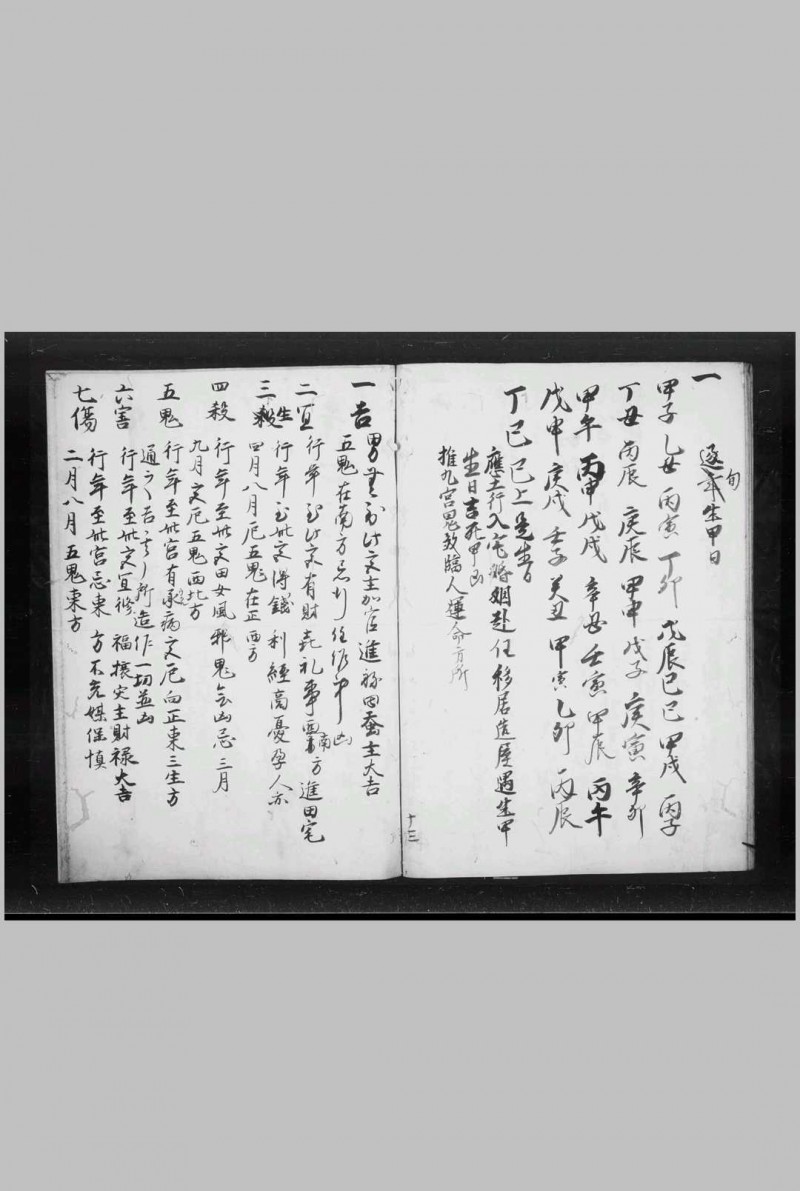 一 逐旬年生甲日
甲子 乙丑 丙寅 丁卯 戊辰 己巳 甲戌 丙子
丁丑 丙辰 庚辰 甲申 戊子 庚寅 辛卯
甲午 丙申 戊戌 辛丑 壬寅 甲辰 丙午
戊申 庚戌 壬子 癸丑 甲寅 乙卯 丙辰
丁巳 已上是生日
應土行入宅婚姻赴任移居造屋遇生甲
生日吉死甲凶
推九宮鬼殺臨人運命方所
十三
一吉 男 到此文主加官進祿田蚕主大吉
五鬼在南方忌行 凶
二宜 行年到此文有財喜礼事西南方進田宅
三生 行年到此文得錢利經商憂孕人亦
四月八月厄五鬼在正西方
四殺 行年至此文田女風邪鬼 凶忌三月
九月文厄五鬼西北方
五鬼 行年至此宮有 病文厄向正東三生方
通之吉 所造作一切並凶
六害 行年至此文宜修福 災主財祿大吉
七傷 行年至此宮忌東方不 媒保慎
二月八月五鬼東方